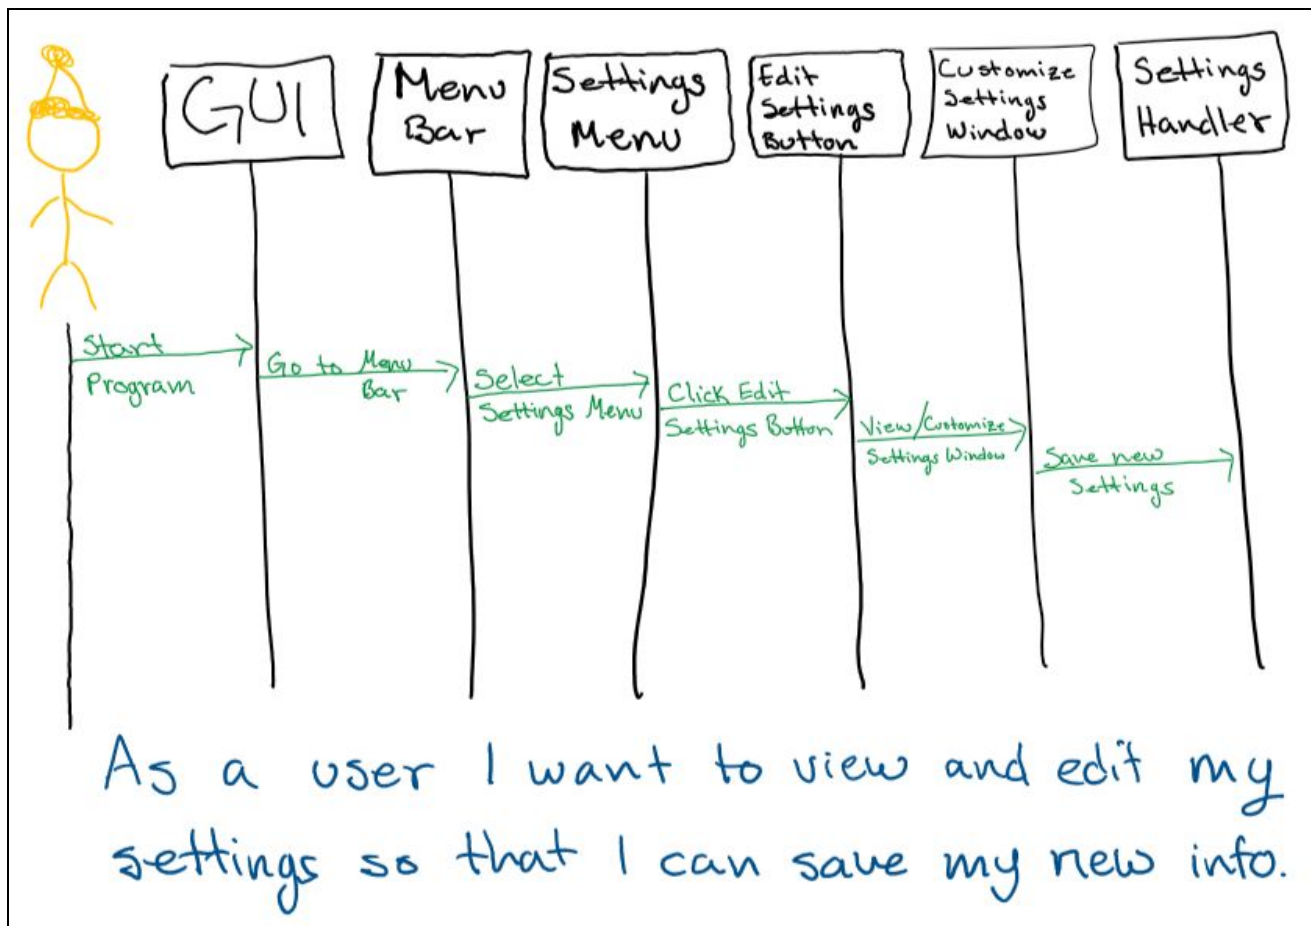 GUI
Menu
Bar
Settings
Menu
Edit
Settings
Button
Customize
Settings
Window
Settings
Handler
Start
Program
Go to Menu
Bar
Select
Settings Menu
Click Edit
Settings Button
View/Customize
Settings Window
Save new
Settings
As a user I want to view and edit my
settings so that I can save my new info.